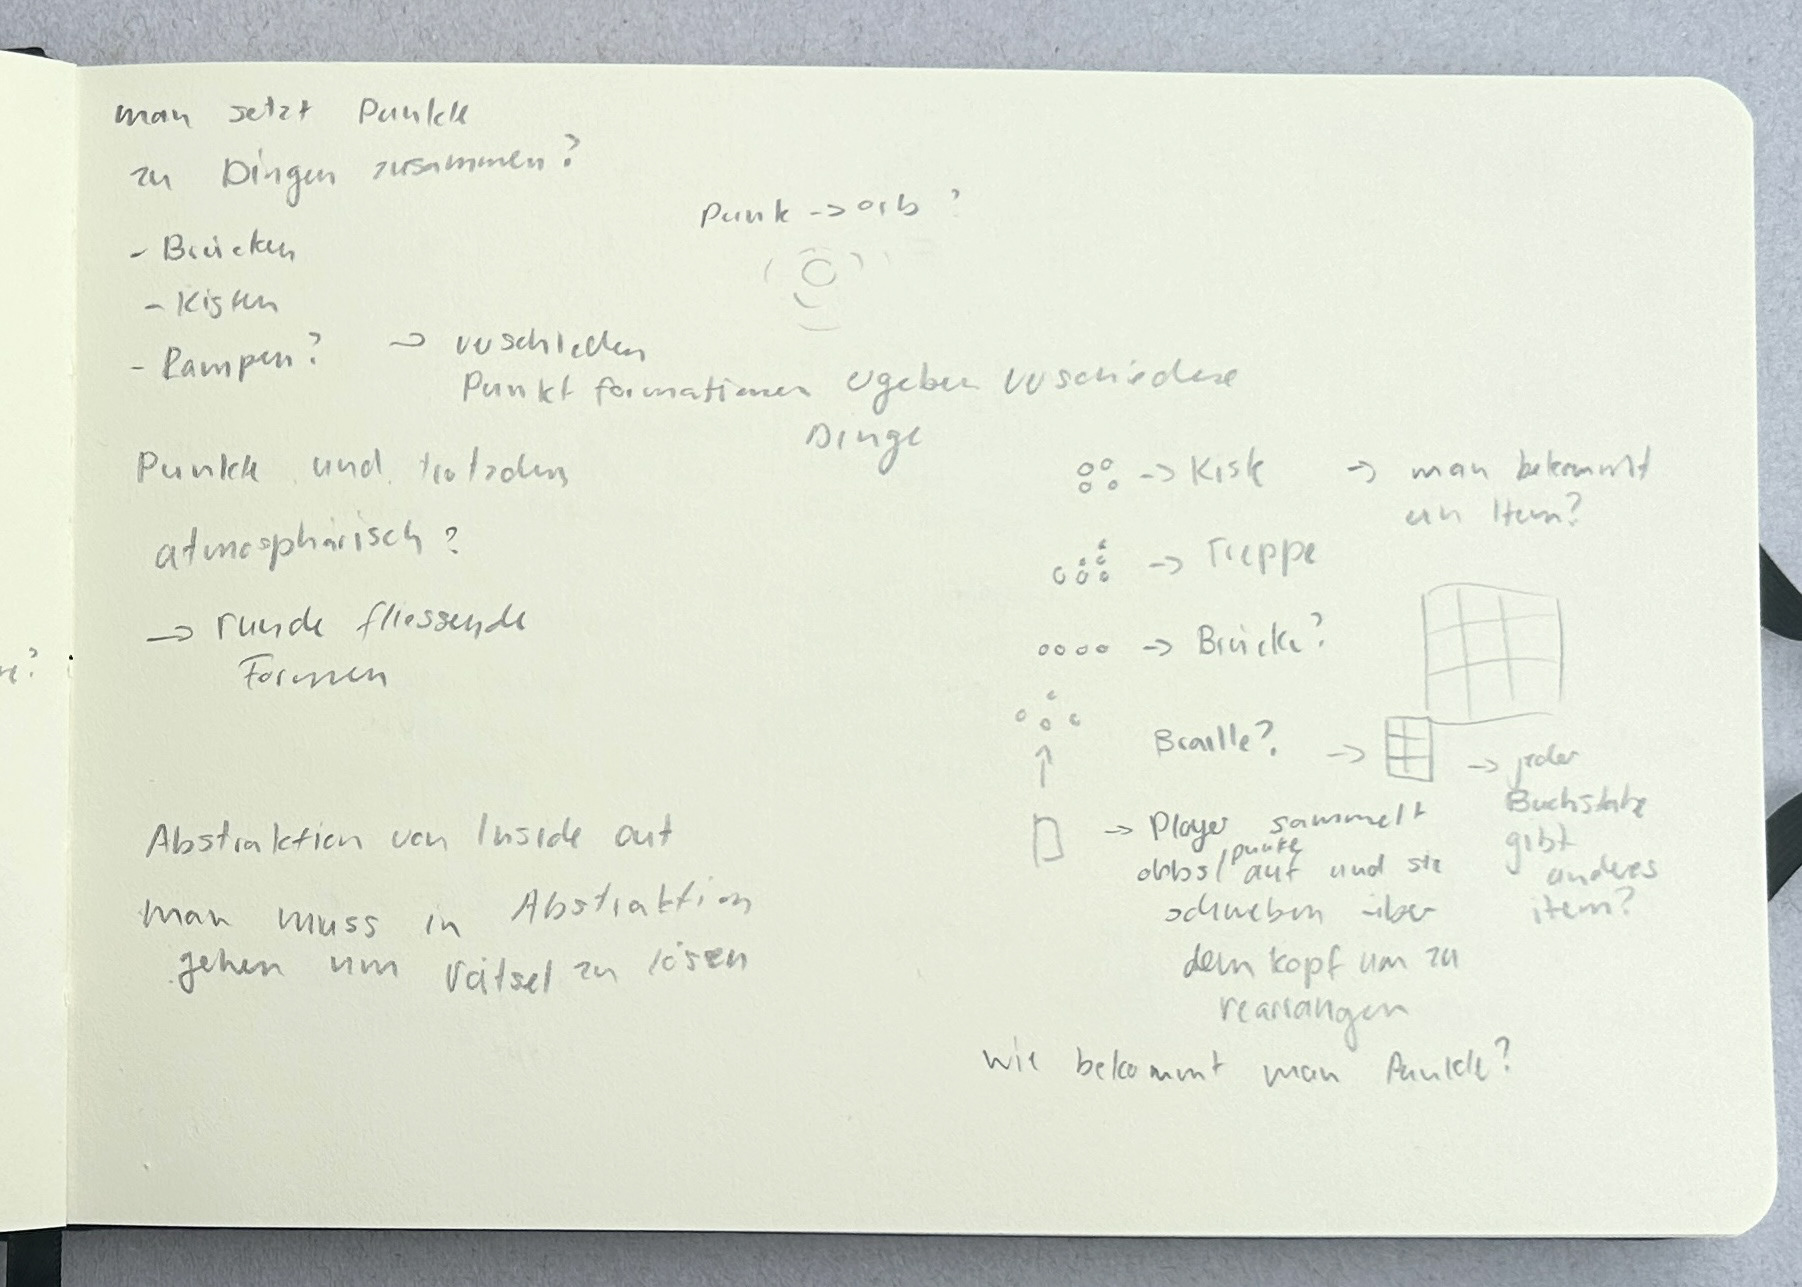 man setzt Punkte
zu Dingen zusammen?
- Brücken
- Kisten
- Rampen?
→ verschieden
Punkt formationen ergeben verschiedene
Dinge
Punk → orb ?
Punkte und trotzdem
atmosphärisch?
→ runde fliessende
Formen
Abstraktion von Inside out
man muss in Abstraktion
gehen um rätsel zu lösen
→ Kiste → man bekommt
ein Item?
→ Treppe
→ Brücke?
Braille? → → jeder
Buchstabe
gibt
anderes
item?
→ Player sammelt
obbs/punkte auf und sie
schweben über
dem kopf um zu
rearrangen
wie bekommt man Punkte?